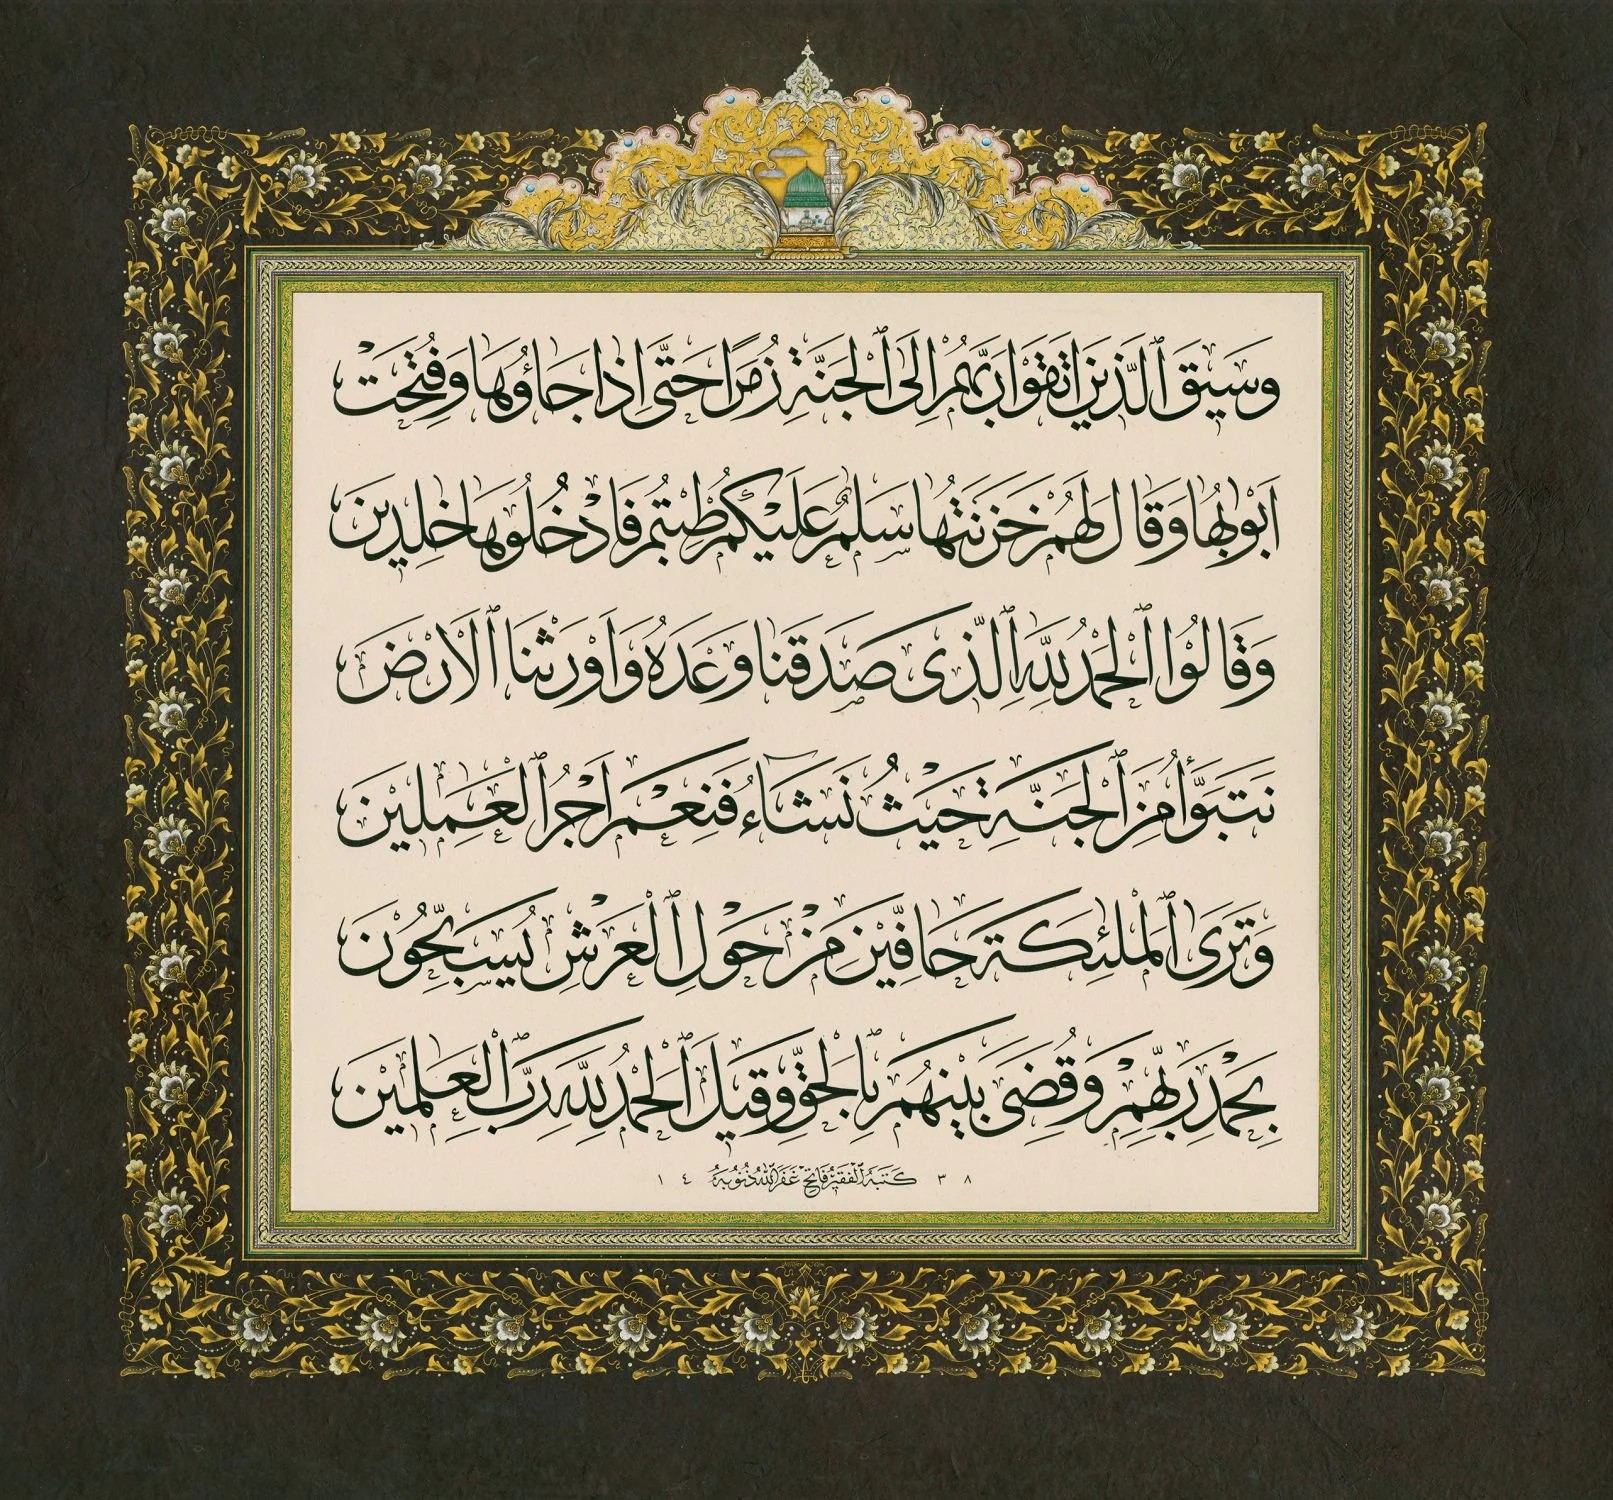 وَسِيقَ ٱلَّذِينَ اتَّقَوْا رَبَّهُمْ اِلَى ٱلْجَنَّةِ زُمَرًا حَتّٰٓى اِذَا جَاؤُهَا وَفُتِحَتْ
اَبْوَابُهَا وَقَالَ لَهُمْ خَزَنَتُهَا سَلٰمٌ عَلَيْكُمْ طِبْتُمْ فَادْخُلُوهَا خٰلِدِينَ
وَقَالُوا ٱلْحَمْدُ لِلّٰهِ ٱلَّذِى صَدَقَنَا وَعْدَهُ وَاَوْرَثَنَا ٱلْاَرْضَ
نَتَبَوَّأُ مِنَ ٱلْجَنَّةِ حَيْثُ نَشَآءُ فَنِعْمَ اَجْرُ ٱلْعٰمِلِينَ
وَتَرَى ٱلْمَلٰئِكَةَ حَافِّينَ مِنْ حَوْلِ ٱلْعَرْشِ يُسَبِّحُونَ
بِحَمْدِ رَبِّهِمْ وَقُضِىَ بَيْنَهُمْ بِٱلْحَقِّ وَقِيلَ ٱلْحَمْدُ لِلّٰهِ رَبِّ ٱلْعٰلَمِينَ
٣٨ كَتَبَهُ ٱلْفَقِيرُ فَاتِح غَفَرَ ٱللّٰهُ ذُنُوبَهُ ١٤